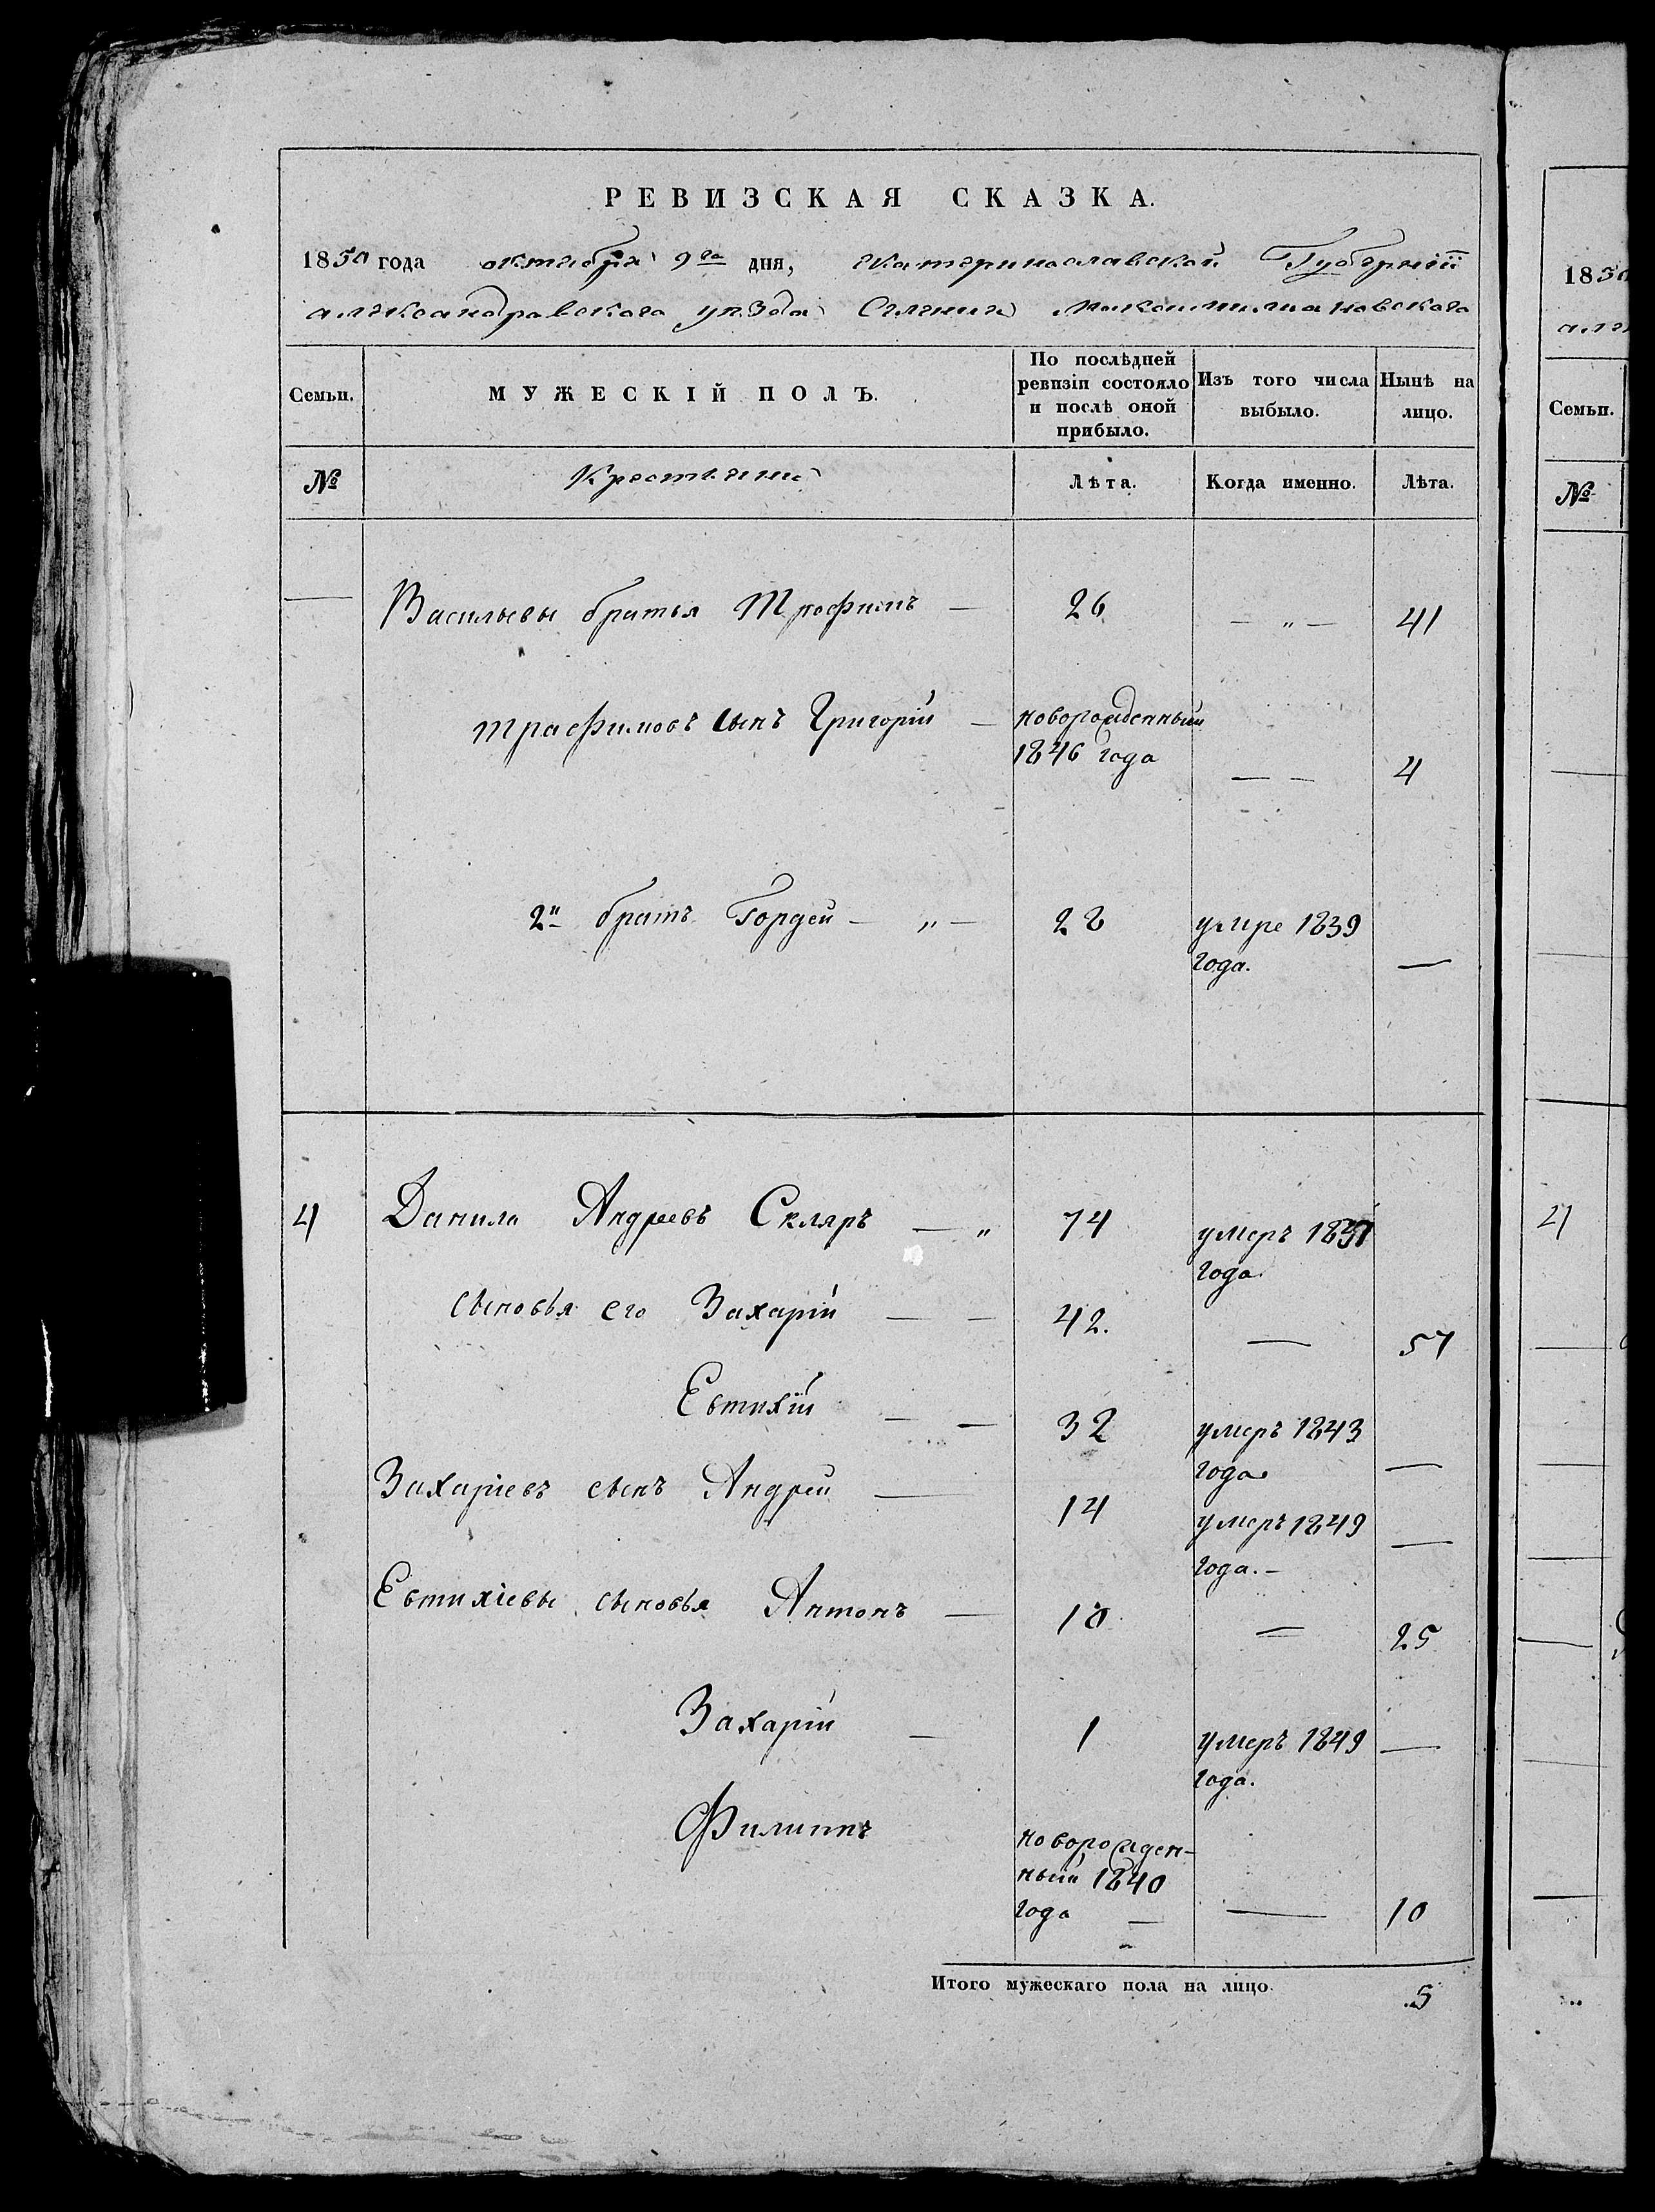 РЕВИЗСКАЯ СКАЗКА.
1850 года октября 9го дня, Екатеринославской Губернiи
александровского уѣзда Селенiя
Семьи. МУЖЕСКIЙ ПОЛЪ. По послѣдней ревизiи состояло и послѣ оной прибыло. Изъ того числа выбыло. Нынѣ на лицо.
№ Крестьяне Лѣта. Когда именно. Лѣта.
Васильевы братья Трофимъ — 26 — „ — 41
трафимовъ сынъ Григорiй — новорожденный
1846 года — — 4
2й братъ Гордей — „ — 28 умре 1839
года. —
4 Данило Андреевъ Скляръ — „ 74 умеръ 1837
года
сыновья его Захарiй — — 42. — 57
Евтихiй — — 32 умеръ 1843
года —
Захарiевъ сынъ Андрей — 14 умеръ 1849
года. — —
Евтихiевы сыновья Антонъ — 10 — 25
Захарiй — 1 умеръ 1849 —
года.
Филиппъ новорожден-
ный 1840
года — — 10
Итого мужескаго пола на лицо. 5
1850
Семьи.
№
4